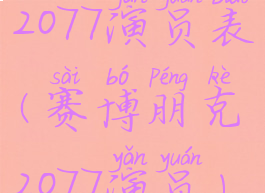 2077演员表
sài bó Péng kè
(赛博朋克
yǎn yuán
2077演员)